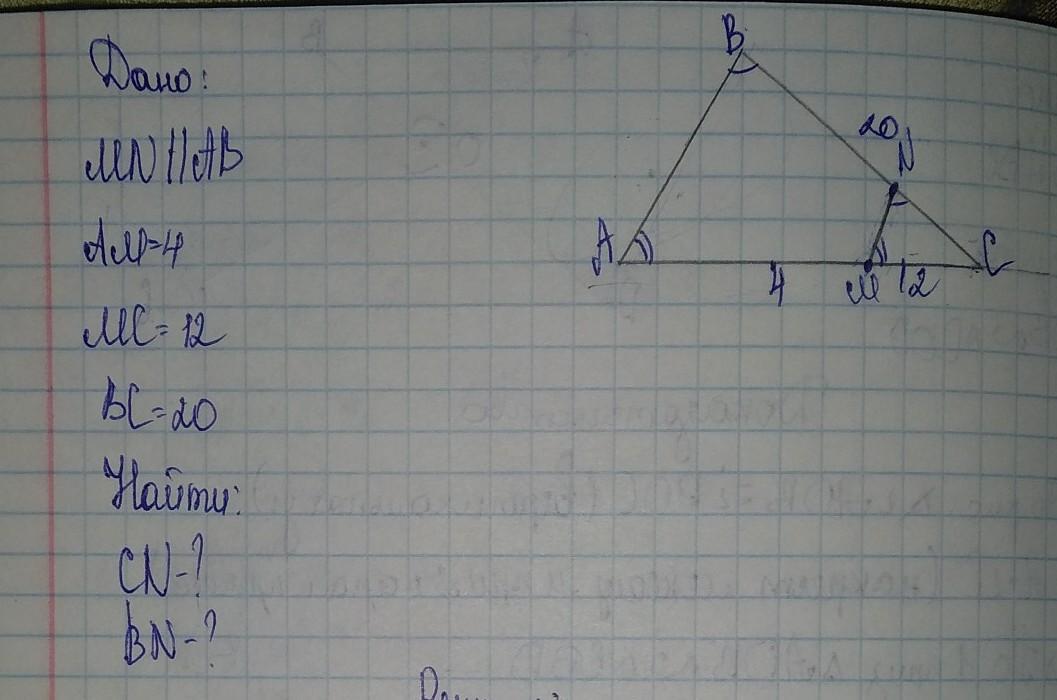 Дано:
MN||AB
AM=4
MC=12
BC=20
Найти:
CN-?
BN-?
B
20
N
A
4
M
12
C